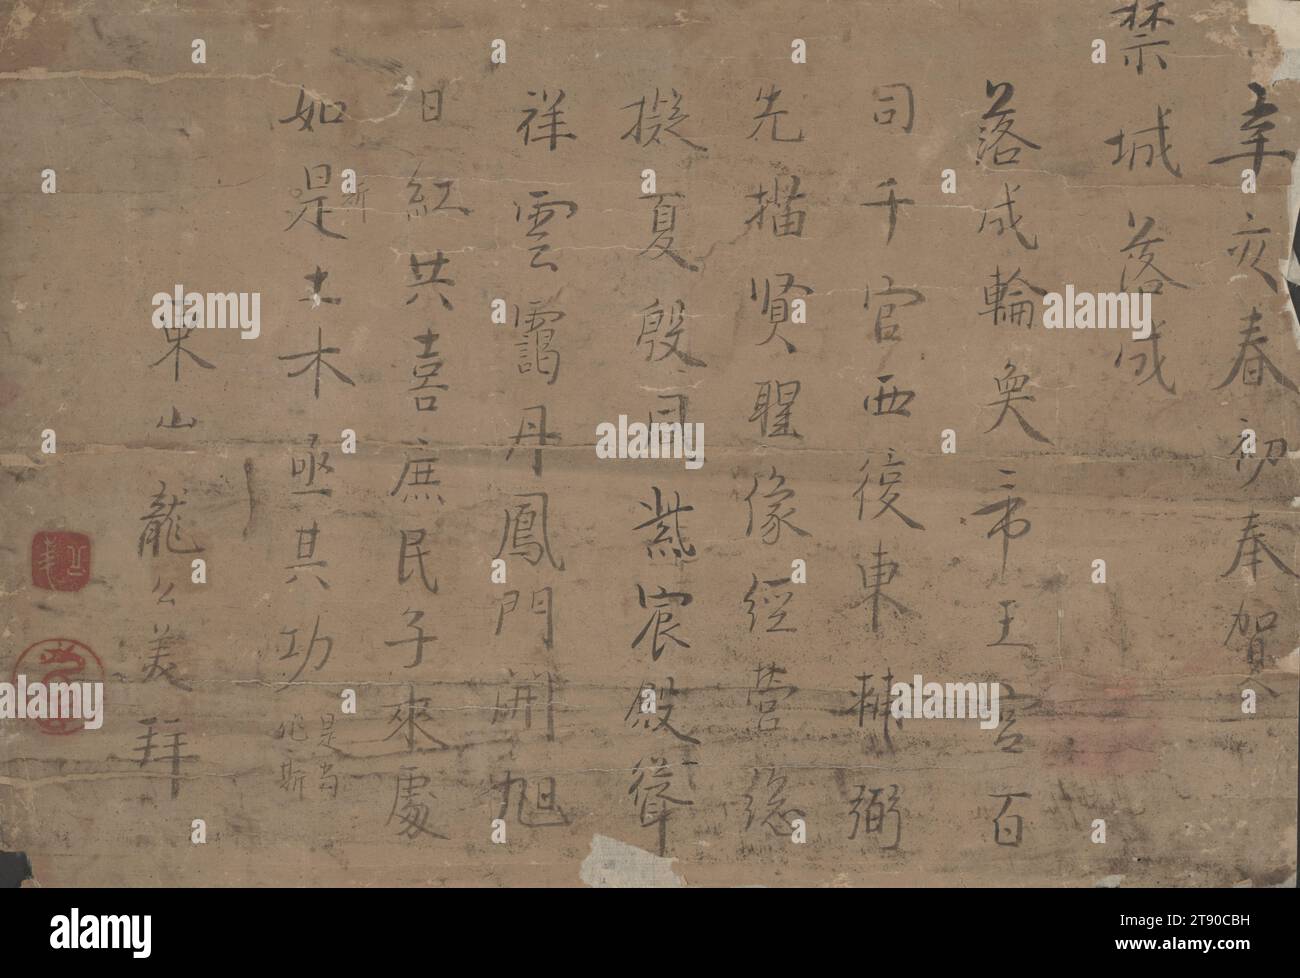 辛亥春初奉賀
禁城落成
落成輪奐帝王宮百
司千官西復東輔弼
先描賢聖像經營
擬夏殷周紫宸殿聳
祥雲靄丹鳳門開旭
日紅共喜庶民子來處
如是土木亟其功
新
是為
東山龍公美拜
alamy
Image ID: 2T90CBH
www.alamy.com